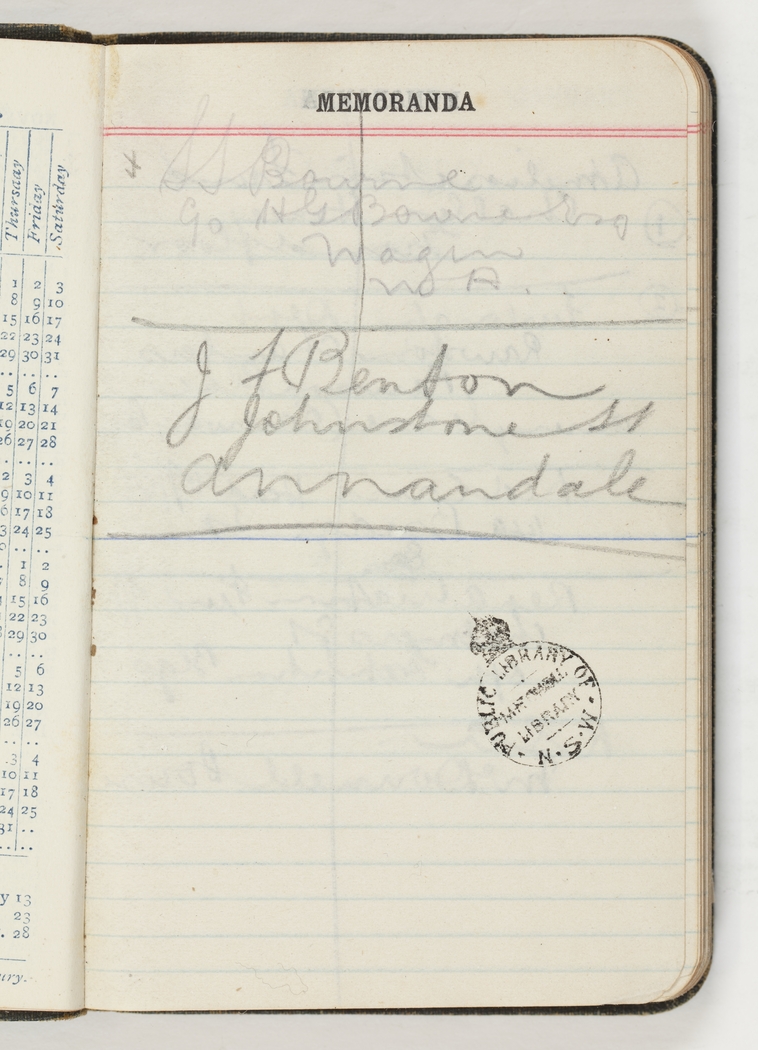 MEMORANDA
S S Bourne
c/o H G Bourne Esq
Wagin
W A.
J F Benton
Johnstone St
Annandale
PUBLIC LIBRARY OF N.S.W.
MITCHELL
LIBRARY
Thursday Friday Saturday
1 2 3
8 9 10
15 16 17
22 23 24
29 30 31
.. .. ..
5 6 7
12 13 14
19 20 21
26 27 28
.. ..
2 3 4
9 10 11
16 17 18
23 24 25
30 .. ..
1 2
8 9
15 16
22 23
29 30
.. ..
5 6
12 13
19 20
26 27
.. ..
3 4
10 11
17 18
24 25
31 ..
.. ..
y 13
23
. 28
ury.